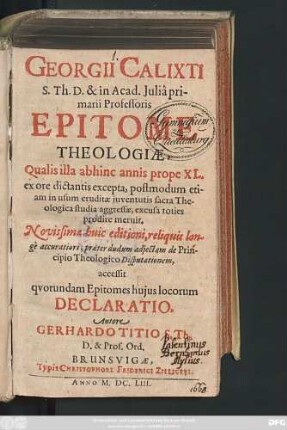 1.
GEORGII CALIXTI
S. Th. D. & in Acad. Juliâ pri-
marii Professoris
EPITOME
THEOLOGIÆ,
Qualis illa abhinc annis prope XL.
ex ore dictantis excepta, postmodum eti-
am in usum eruditæ juventutis sacra The-
ologica studia aggressæ, excusa toties
prodire meruit.
Novissimæ huic editioni, reliquis lon-
gè accuratiori, præter dudum adjectam de Prin-
cipio Theologico Disputationem,
accessit
qvorundam Epitomes hujus locorum
DECLARATIO.
Autore
GERHARDO TITIO S. Th.
D. & Prof. Ord.
BRUNSVIGÆ,
Typis CHRISTOPHORI FRIDERICI ZILLIGERI.
ANNO M. DC. LIII.
Gymnasium
zu
Quedlinburg
Valentinus